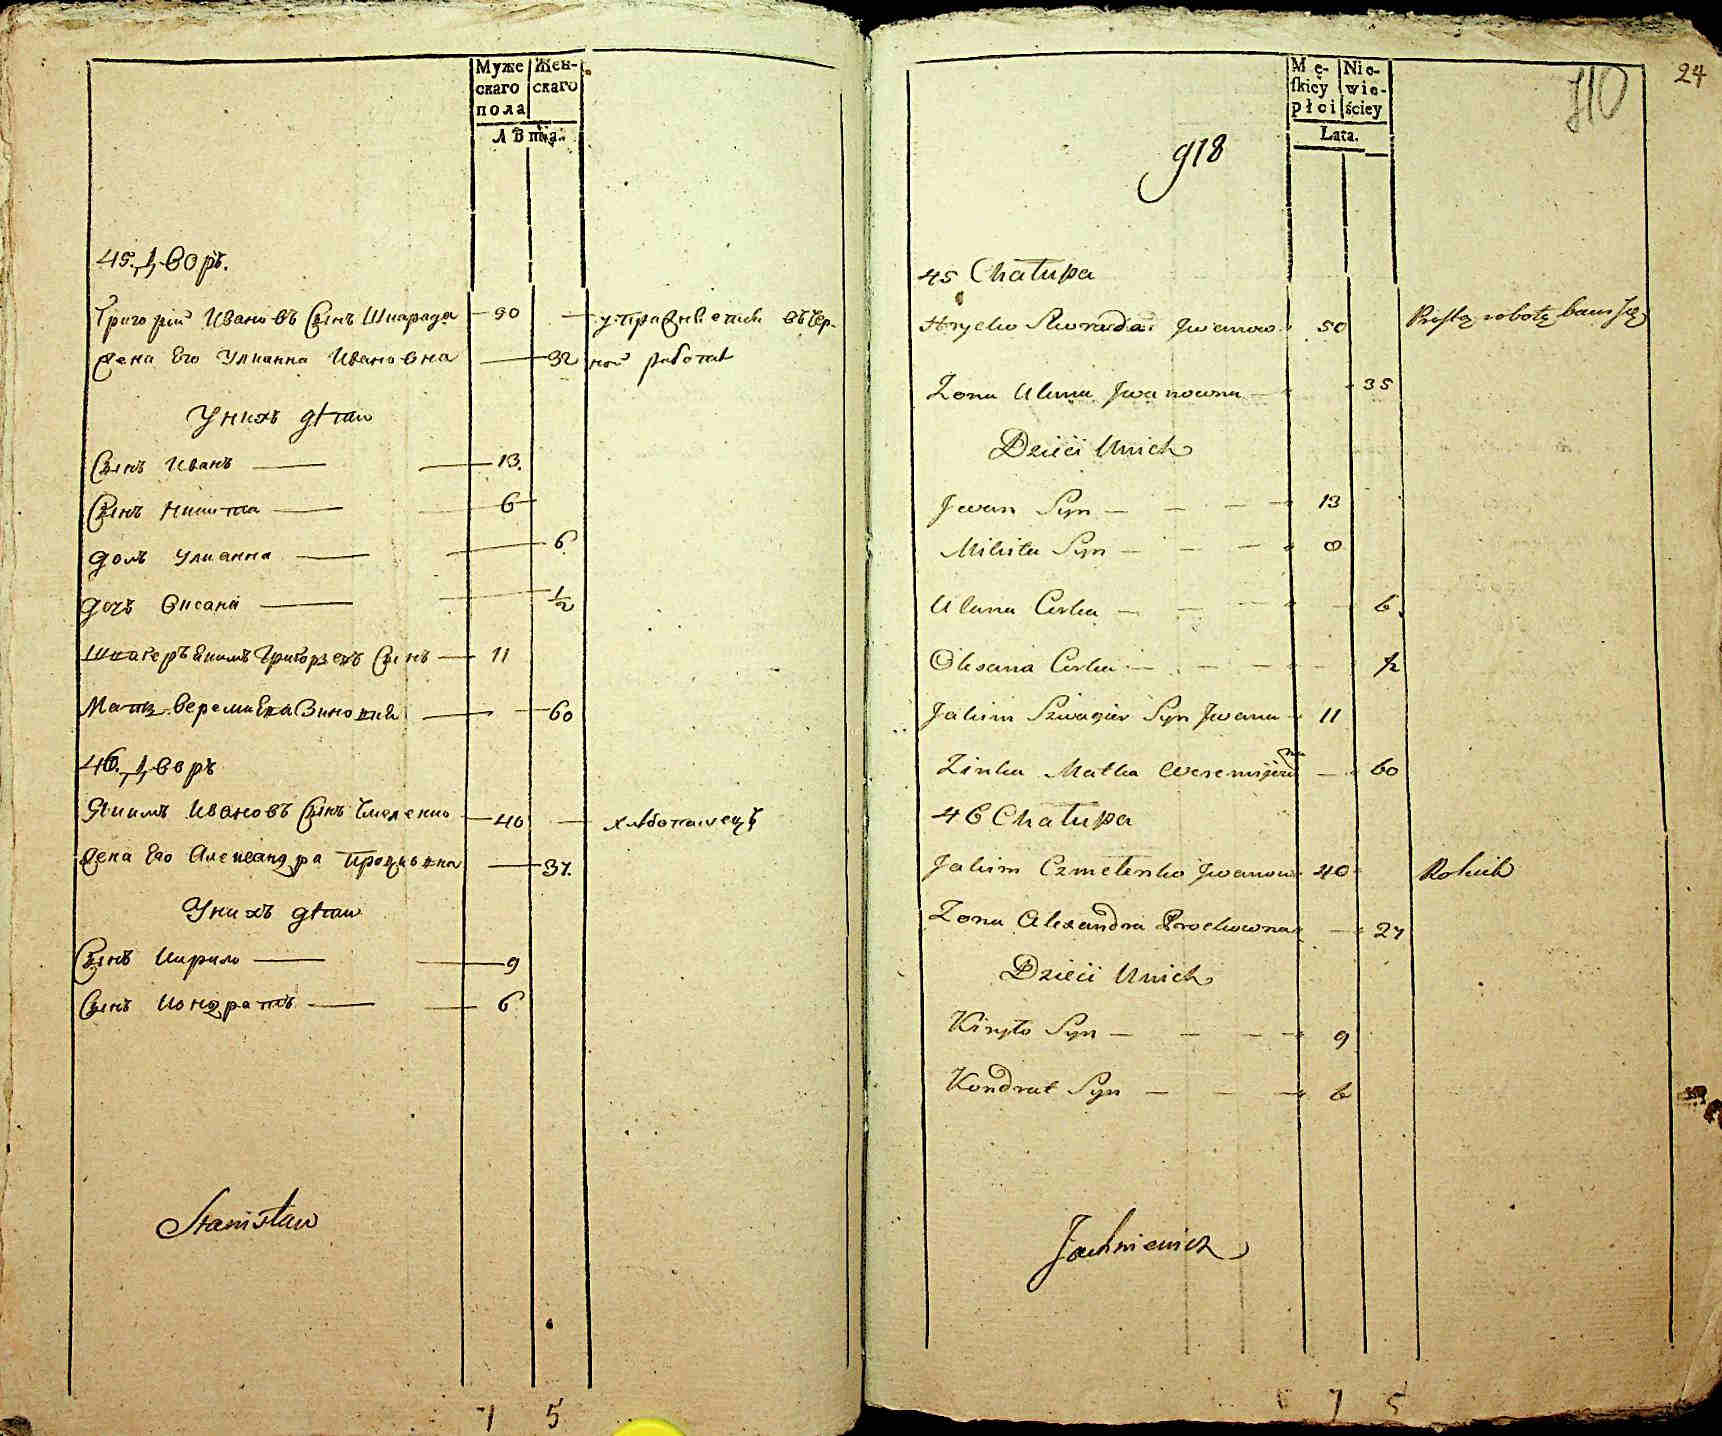 Муже
скаго
пола
Жен-
скаго
Лѣта.
45. Дворъ.
Григорій Ивановъ Сынъ Шкарада 90
упражняется въ чер-
Жена Его Улианна Ивановна 32
ной работѣ
У нихъ дѣти
Сынъ Иванъ 13.
Сынъ Никита 6
дочь Улианна 6.
дочь Оксана 1/2
Швагеръ Якимъ Григорьевъ Сынъ 11
Мать Веремиевна Зиновия 60
46. Дворъ
Якимъ Ивановъ Сынъ Чмеленко 40
хлѣбопашецъ
Жена Его Александра Процовна 37.
У нихъ дѣти
Сынъ Кирило 9
Сынъ Кондратъ 6
Stanisław
7 5
24
110
Mę-
skiey
płci
Nie-
wie-
ściey
Lata.
918
45 Chałupa
Hrycko Skorada Jwanow 50
Prostą robotą bawi się
Zona Ulana Jwanowna 35
Dzieci Unich
Jwan Syn 13
Mikita Syn 8
Ulana Corka 6.
Oleana Corka 1/2
Jakim Szwagier Syn Jwana 11
Zinka Matka Weremijowna 60
46 Chałupa
Jakim Czmelenko Jwanow 40
Rolnik
Zona Alexandra Prockowna 27
Dzieci Unich
Kiryło Syn 9
Kondrat Syn 6
Jachniewicz
7 5